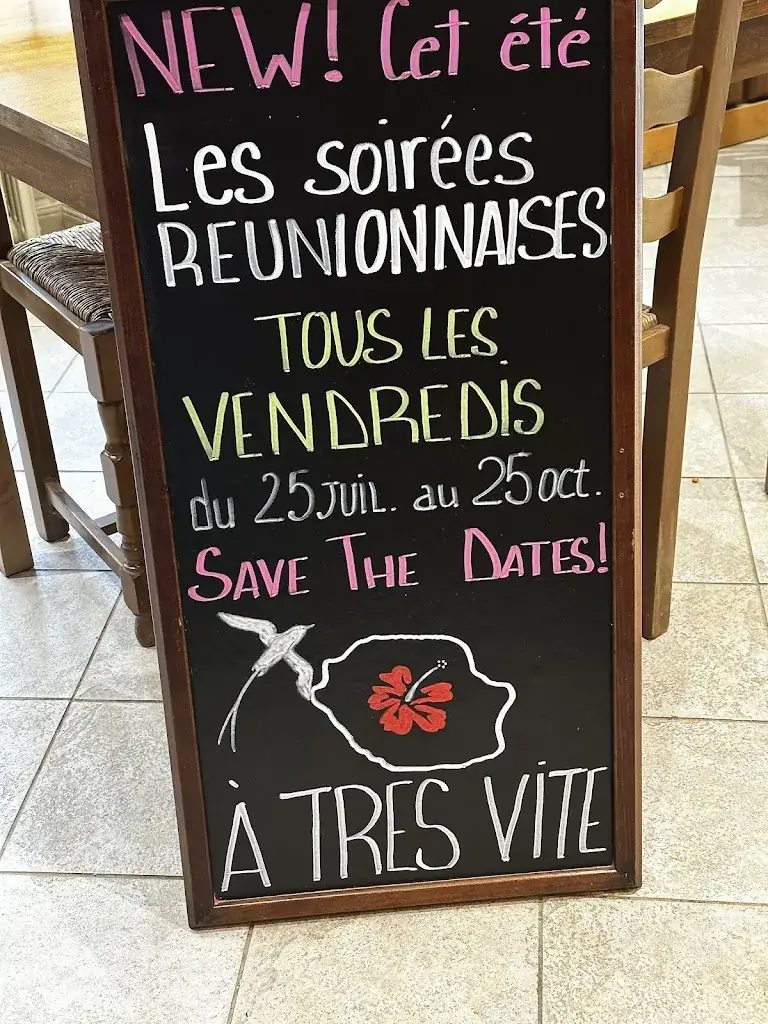 NEW! Cet été
Les soirées
REUNIONNAISES
TOUS LES
VENDREDIS
du 25 JUIL. au 25 oct.
SAVE THE DATES!
À TRES VITE